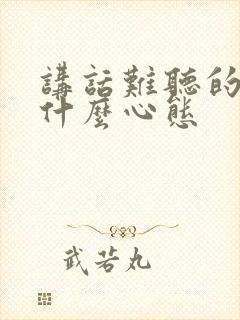 講話難聽的
什麼心態
武若丸